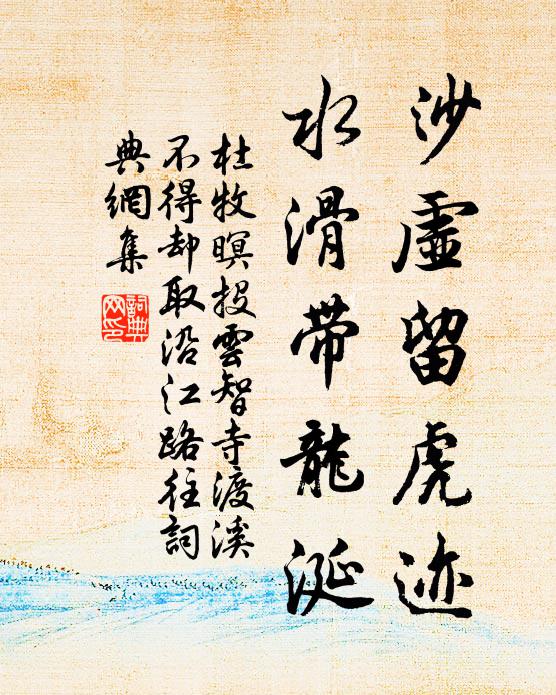 沙虛留虎迹
水滑帶龍涎
杜牧暝投雲智寺渡溪
不得却取沿江路往詞
典網集
詞典
网印